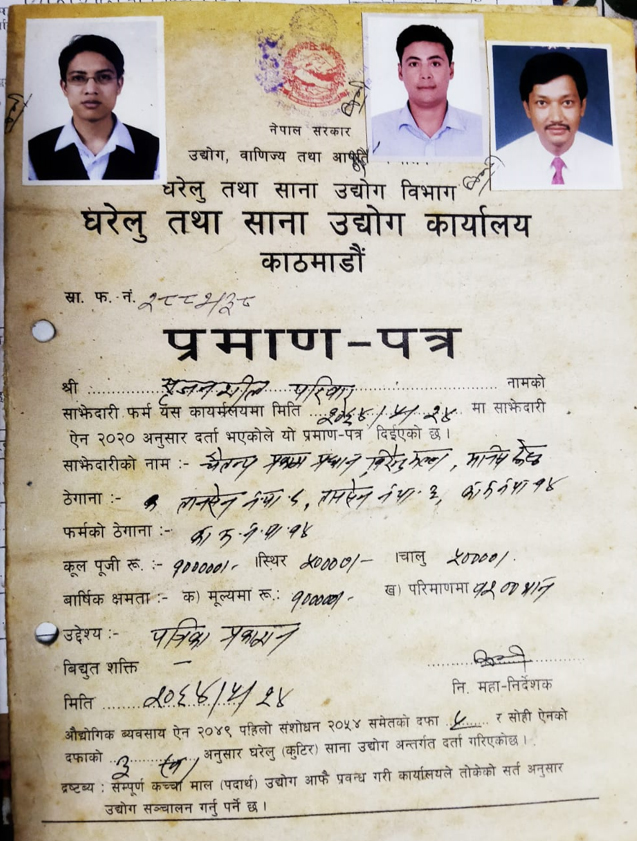 नेपाल सरकार
उद्योग, वाणिज्य तथा आपूर्ति
घरेलु तथा साना उद्योग विभाग
घरेलु तथा साना उद्योग कार्यालय
काठमाडौं
सा. फ. नं.
प्रमाण-पत्र
श्री सृजनशील परिवार नामको
साझेदारी फर्म यस कायर्मलयमा मिति २०६४/५/२४ मा साझेदारी
ऐन २०२० अनुसार दर्ता भएकोले यो प्रमाण-पत्र दिईएको छ।
साझेदारीको नाम :- प्रकाश प्रधान
ठेगाना :- तानसेन न.पा. ६, तानसेन न.पा. ३, का.म.न.पा १४
फर्मको ठेगाना :- का.म.न.पा १४
कूल पूजी रू. :- १०००००।- ।स्थिर ५००००।- ।चालु ५००००।
बार्षिक क्षमता :- क) मूल्यमा रू: १०००००।- ख) परिमाणमा १२०० थान
उद्देश्य :- पत्रिका प्रकाशन
बिद्युत शक्ति —
नि. महा-निर्देशक
मिति २०६४/५/२४
औद्योगिक ब्यवसाय ऐन २०४९ पहिलो संशोधन २०५४ समेतको दफा ५ र सोही ऐनको
दफाको ३ अनुसार घरेलु (कुटिर) साना उद्योग अन्तर्गत दर्ता गरिएकोछ।
द्रष्टब्य : सम्पूर्ण कच्चा माल (पदार्थ) उद्योग आफै प्रवन्ध गरी कार्यालयले तोकेको सर्त अनुसार
उद्योग सञ्चालन गर्नु पर्ने छ।